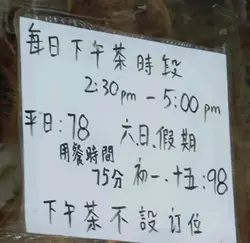 每日下午茶時段
2:30pm - 5:00pm
平日:78 六.日.假期
用餐時間 初一.十五:98
75分
下午茶不設訂位